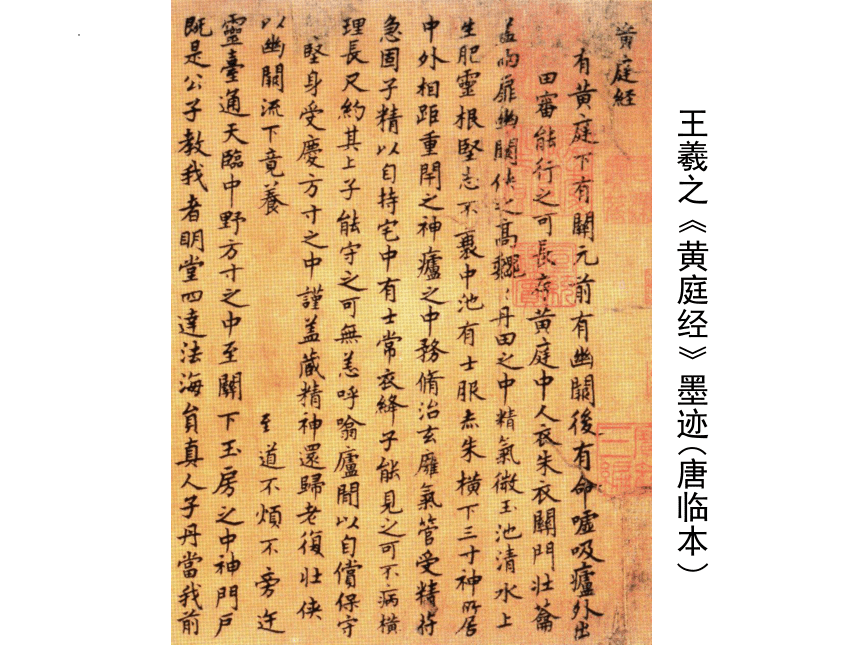 黄庭経
有黄庭下有關元前有幽闕後有命嘘吸廬外出
田審能行之可長存黄庭中人衣朱衣關門壯籥
盖兩扉幽闕俠之高巍〻丹田之中精氣微玉池清水上
生肥靈根堅志不衰中池有士服赤朱横下三寸神所居
中外相距重閇之神廬之中務脩治玄廱氣管受精符
急固子精以自持宅中有士常衣絳子能見之可不病横
理長尺約其上子能守之可無恙呼噏廬閒以自償保守
堅身受慶方寸之中謹盖藏精神還歸老復壯俠
以幽闕流下竟養 至道不煩不旁迕
靈臺通天臨中野方寸之中至關下玉房之中神門戶
既是公子教我者明堂四達法海貟真人子丹當我前
王羲之《黄庭经》墨迹(唐临本)